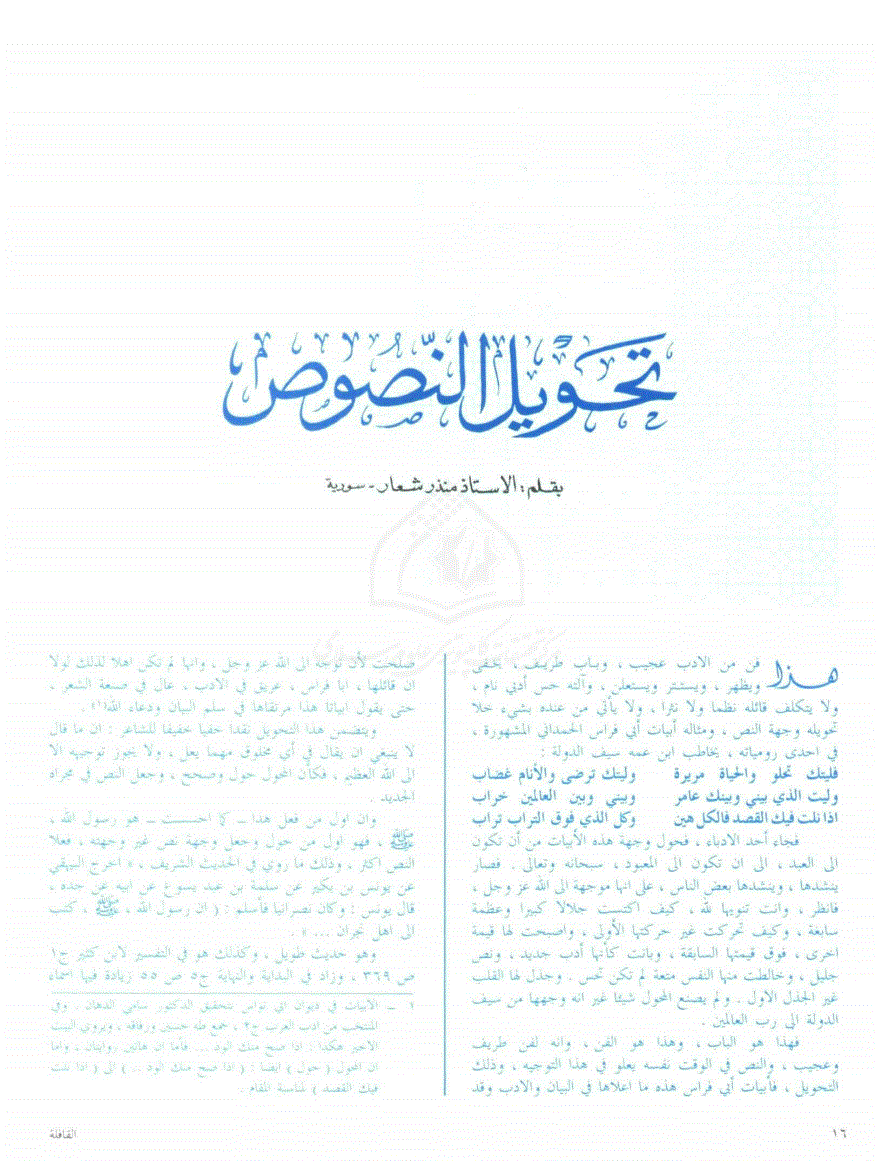 تحويل النصوص
بقلم: الاستاذ منذر شعار - سورية
هذا فن من الادب عجيب ، وباب طريف ، يخفى
ويظهر ، ويستتر ويستعلن ، وآلته حس أدبي نام ،
ولا يتكلف قائله نظما ولا نثرا ، ولا يأتي من عنده بشيء خلا
تحويله وجهة النص ، ومثاله أبيات أبي فراس الحمداني المشهورة ،
في احدى رومياته ، يخاطب ابن عمه سيف الدولة :
فليتك تحلو والحياة مريرة وليتك ترضى والأنام غضاب
وليت الذي بيني وبينك عامر وبيني وبين العالمين خراب
اذا نلت فيك القصد فالكل هين وكل الذي فوق التراب تراب
فجاء أحد الادباء ، فحول وجهة هذه الأبيات من أن تكون
الى العبد ، الى ان تكون الى المعبود ، سبحانه وتعالى . فصار
ينشدها ، وينشدها بعض الناس ، على انها موجهة الى الله عز وجل ،
فانظر ، وانت تنويها لله ، كيف اكتست جلالا كبيرا وعظمة
سابغة ، وكيف تحركت غير حركتها الأولى ، واصبحت لها قيمة
اخرى ، فوق قيمتها السابقة ، وباتت كأنها أدب جديد ، ونص
جليل ، وخالطت منها النفس متعة لم تكن تحس . وجذل لها القلب
غير الجذل الاول . ولم يصنع المحول شيئا غير انه وجهها من سيف
الدولة الى رب العالمين .
فهذا هو الباب ، وهذا هو الفن ، وانه لفن طريف
وعجيب ، والنص في الوقت نفسه يعلو في هذا التوجيه ، وذلك
التحويل ، فأبيات أبي فراس هذه ما اعلاها في البيان والادب وقد
صلحت لأن توجه الى الله عز وجل ، وانها لم تكن اهلا لذلك لولا
ان قائلها ، ابا فراس ، عريق في الادب ، عال في صنعة الشعر ،
حتى يقول ابياتا هذا مرتقاها في سلم البيان ودعاء الله(١) .
ويتضمن هذا التحويل نقدا خفيا خفيفا للشاعر : ان ما قال
لا ينبغي ان يقال في أي مخلوق مهما يعل ، ولا يجوز توجيهه الا
الى الله العظيم ، فكأن المحول حول وصحح ، وجعل النص في مجراه
الجديد .
وان اول من فعل هذا ــ كما احسست ــ هو رسول الله ،
ﷺ ، فهو اول من حول وجعل وجهة نص غير وجهته ، فعلا
النص اكثر ، وذلك ما روي في الحديث الشريف ، « اخرج البيهقي
عن يونس بن بكير عن سلمة بن عبد يسوع عن ابيه عن جده ،
قال يونس : وكان نصرانيا فأسلم : ( ان رسول الله ، ﷺ ، كتب
الى اهل نجران ... » .
وهو حديث طويل ، وكذلك هو في التفسير لابن كثير ج١
ص ٣٦٩ ، وزاد في البداية والنهاية ج٥ ص ٥٥ زيادة فيها اسماء
١ ــ الابيات في ديوان ابي نواس بتحقيق الدكتور سامي الدهان . وفي
المنتخب من ادب العرب ج٢ ، جمع طه حسين ورفاقه ، ويروي البيت
الاخير هكذا : اذا صح منك الود .... فأما ان هاتين روايتان ، واما
ان المحول ( حول ) ايضا : ( اذا صح منك الود .. ) الى ( اذا نلت
فيك القصد ) لمناسبة المقام .
١٦
القافلة